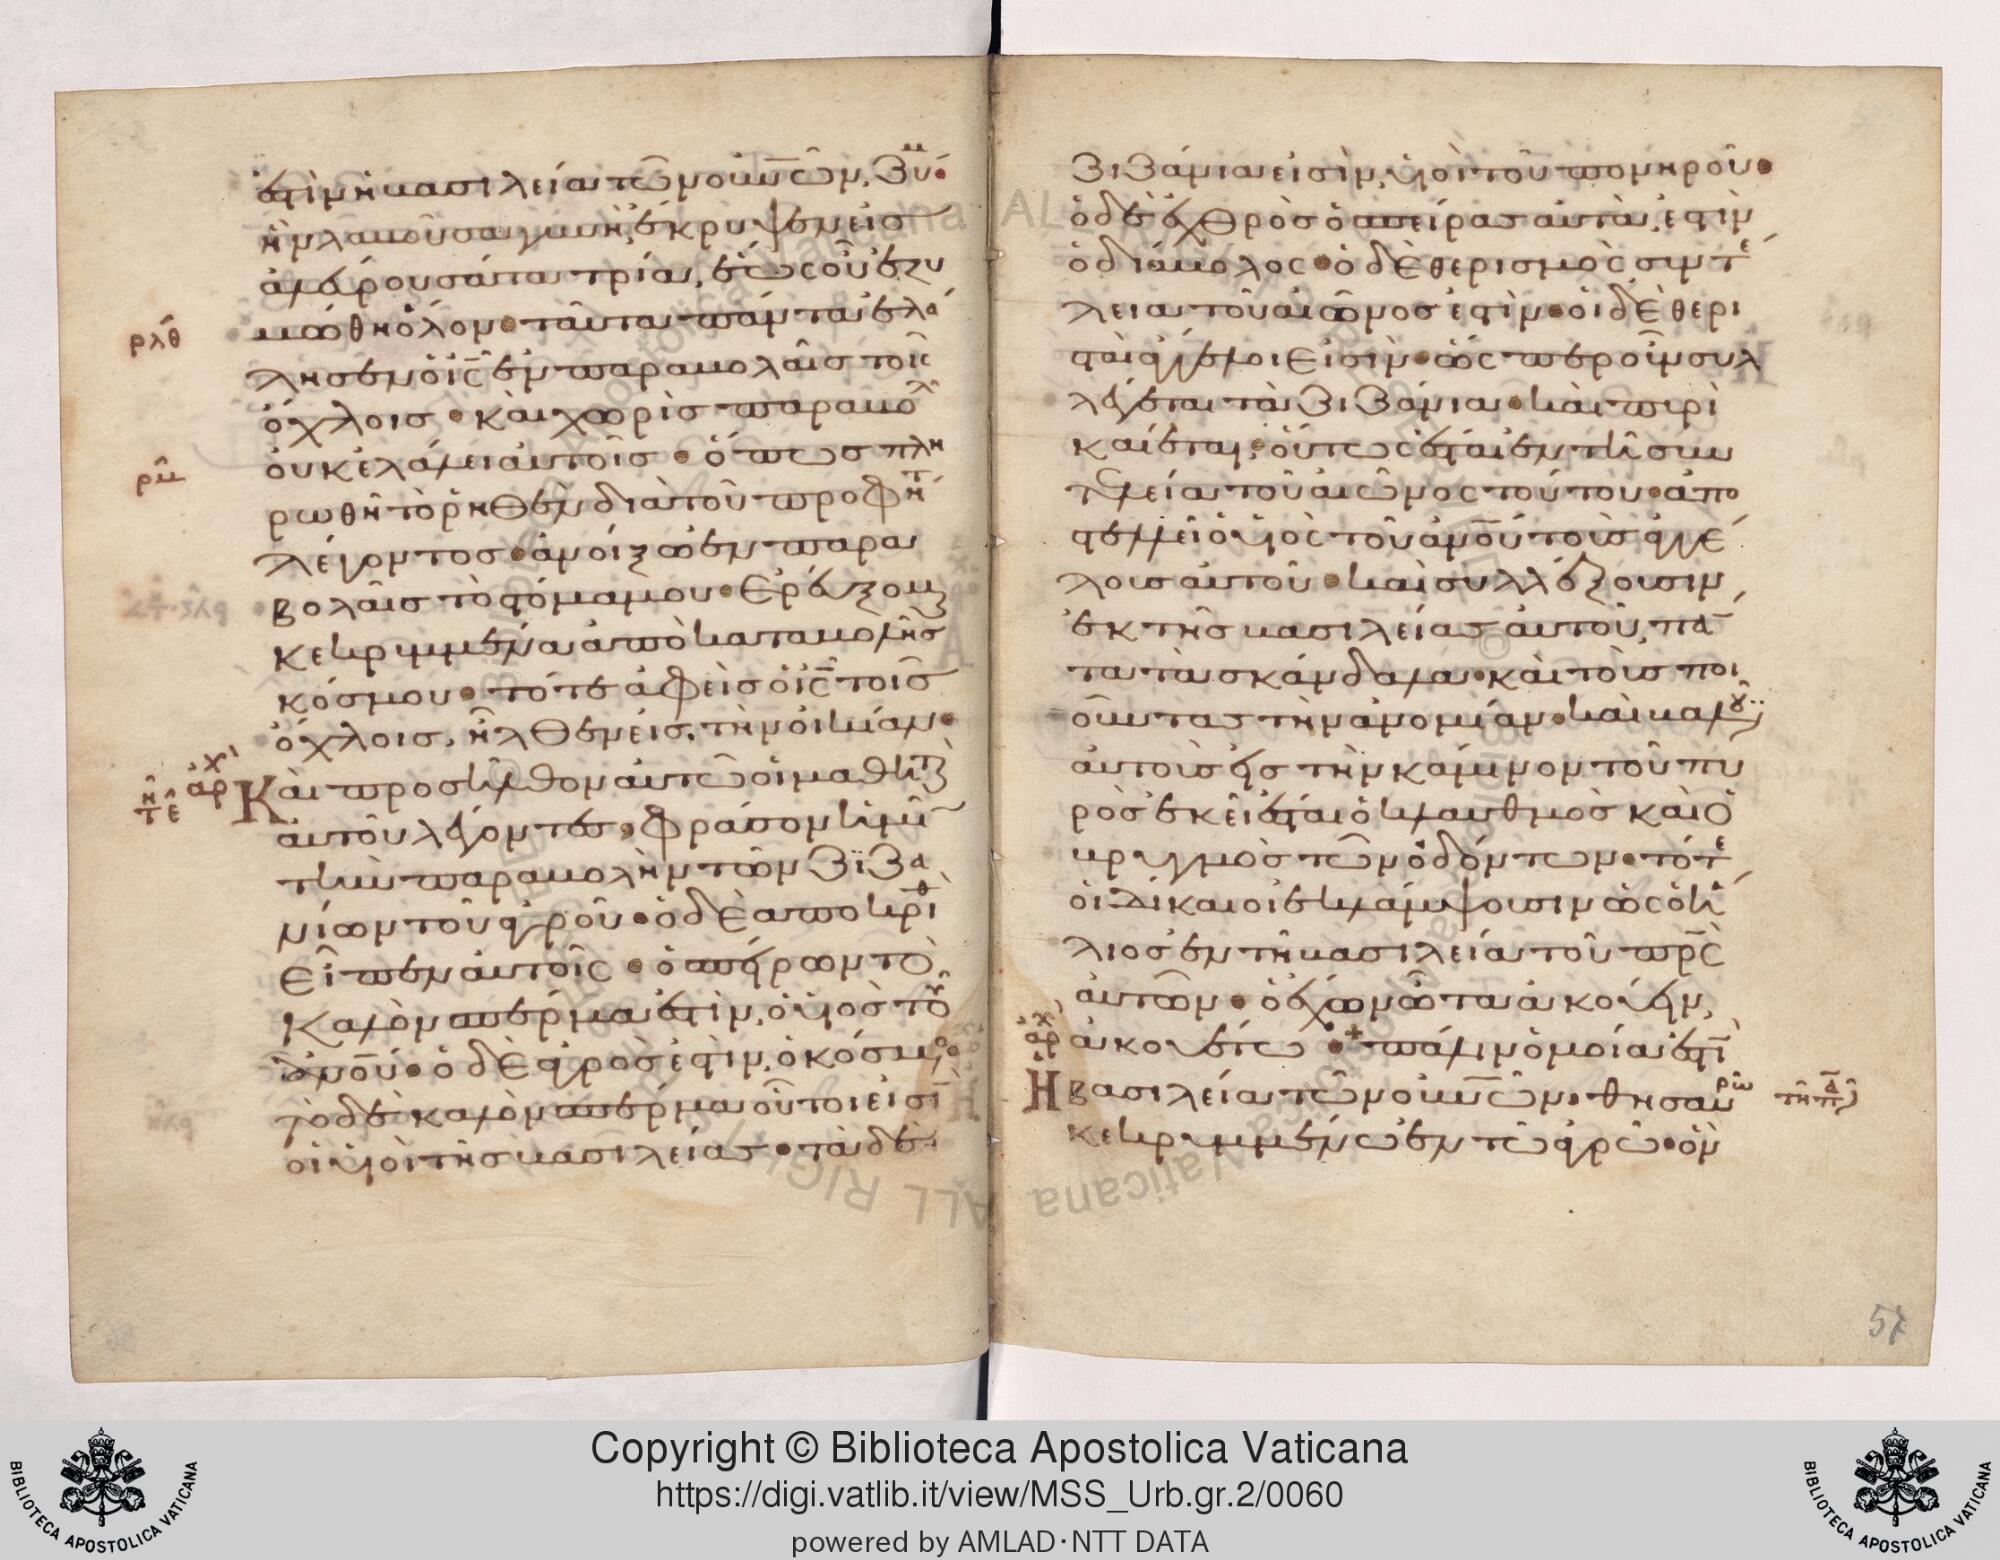 ἐστὶν ἡ βασιλεία τῶν οὐν̅ῶν, ζύμ
ἣν λαβοῦσα γυνὴ, ἔκρυψεν εἰσ
ἀλεύρου σάτα τρία, ἕως οὗ ἐζυ
μώθη ὅλον· ταῦτα πάντα ἐλά
ρλθ
λησεν ὁ ι̅ς̅ ἐν παραβολαῖσ τοῖς
ὄχλοισ· καὶ χωρὶσ παραβολ
οὐκ ἐλάλει αὐτοῖσ· ὅπωσ πλη
ρμ
ρωθῆ τὸ ῥηθὲν διὰ τοῦ προφήτ
λέγοντοσ· ἀνοίξω ἐν παρα
βολαῖσ τὸ στόμα μου· ἐρεύξομ
κεκρυμμένα ἀπὸ καταβολῆσ
κόσμου· τότε ἀφεὶσ ὁ ι̅ς̅ τοῖσ
ὄχλοισ, ἦλθεν εἰσ τὴν οἰκίαν·
αρχ
Καὶ προσῆλθον αὐτῶ οἱ μαθητ
τῆ ε
αὐτοῦ λέγοντεσ· φράσον ἡμῖ
τὴν παραβολὴν τῶν ζιζα
νίων τοῦ ἀγροῦ· ὁ δὲ ἀποκριθ
εἶπεν αὐτοῖς· ὁ σπείρων τὸ
καλὸν σπέρμα ἐστὶν, ὁ υἱὸσ τοῦ
ἀν̅ου̅· ὁ δὲ ἀγρὸσ ἐστὶν, ὁ κόσμο
τὸ δὲ καλὸν σπέρμα οὗτοι εἰσὶ
οἱ υἱοὶ τῆσ βασιλείασ· τὰ δὲ
ζιζάνια εἰσὶν, υἱοὶ τοῦ πονηροῦ·
ὁ δὲ ἐχθρὸσ ὁ σπείρασ αὐτὰ, ἐστὶν
ὁ διάβολος· ὁ δὲ θερισμὸς συντέ
λεια τοῦ αἰῶνοσ ἐστὶν· οἱ δὲ θερι
σταὶ ἄγγελοι εἰσὶν· ὥς περ οὖν συλ
λέγεται τὰ ζιζάνια· καὶ πυρὶ
καίεται· οὕτως ἔσται ἐν τῆ συν
τελεία τοῦ αἰῶνος τούτου· ἀπο
στελεῖ ὁ υἱὸς τοῦ ἀν̅ου̅ τοὺσ ἀγγέ
λουσ αὐτοῦ· καὶ συλλέξουσιν
ἐκ τῆσ βασιλείασ αὐτοῦ, πα
τα τὰ σκάνδαλα· καὶ τοὺσ ποι
οῦντασ τὴν ἀνομίαν· καὶ βαλοῦ
αὐτοὺσ εἰσ τὴν κάμινον τοῦ πυ
ρὸσ ἐκεῖ ἔσται ὁ κλαυθμὸσ καὶ ὁ
βρυγμὸσ τῶν ὀδόντων· τότε
οἱ δίκαιοι ἐκλάμψουσιν ὡς ὁ ἥ
λιοσ ἐν τῆ βασιλεία τοῦ πρ̅ς̅
αὐτῶν· ὁ ἔχων ὦτα ἀκούειν,
αρχ
ἀκουέτω·+ πάλιν ὁμοία ἐστὶ
Ἡ βασιλεία τῶν οὐν̅ῶν· θησαυρῶ
κεκρυμμένω ἐν τῶ ἀγρῶ· ὃν
57
Copyright © Biblioteca Apostolica Vaticana
https://digi.vatlib.it/view/MSS_Urb.gr.2/0060
powered by AMLAD·NTT DATA
BIBLIOTECA APOSTOLICA VATICANA
BIBLIOTECA APOSTOLICA VATICANA